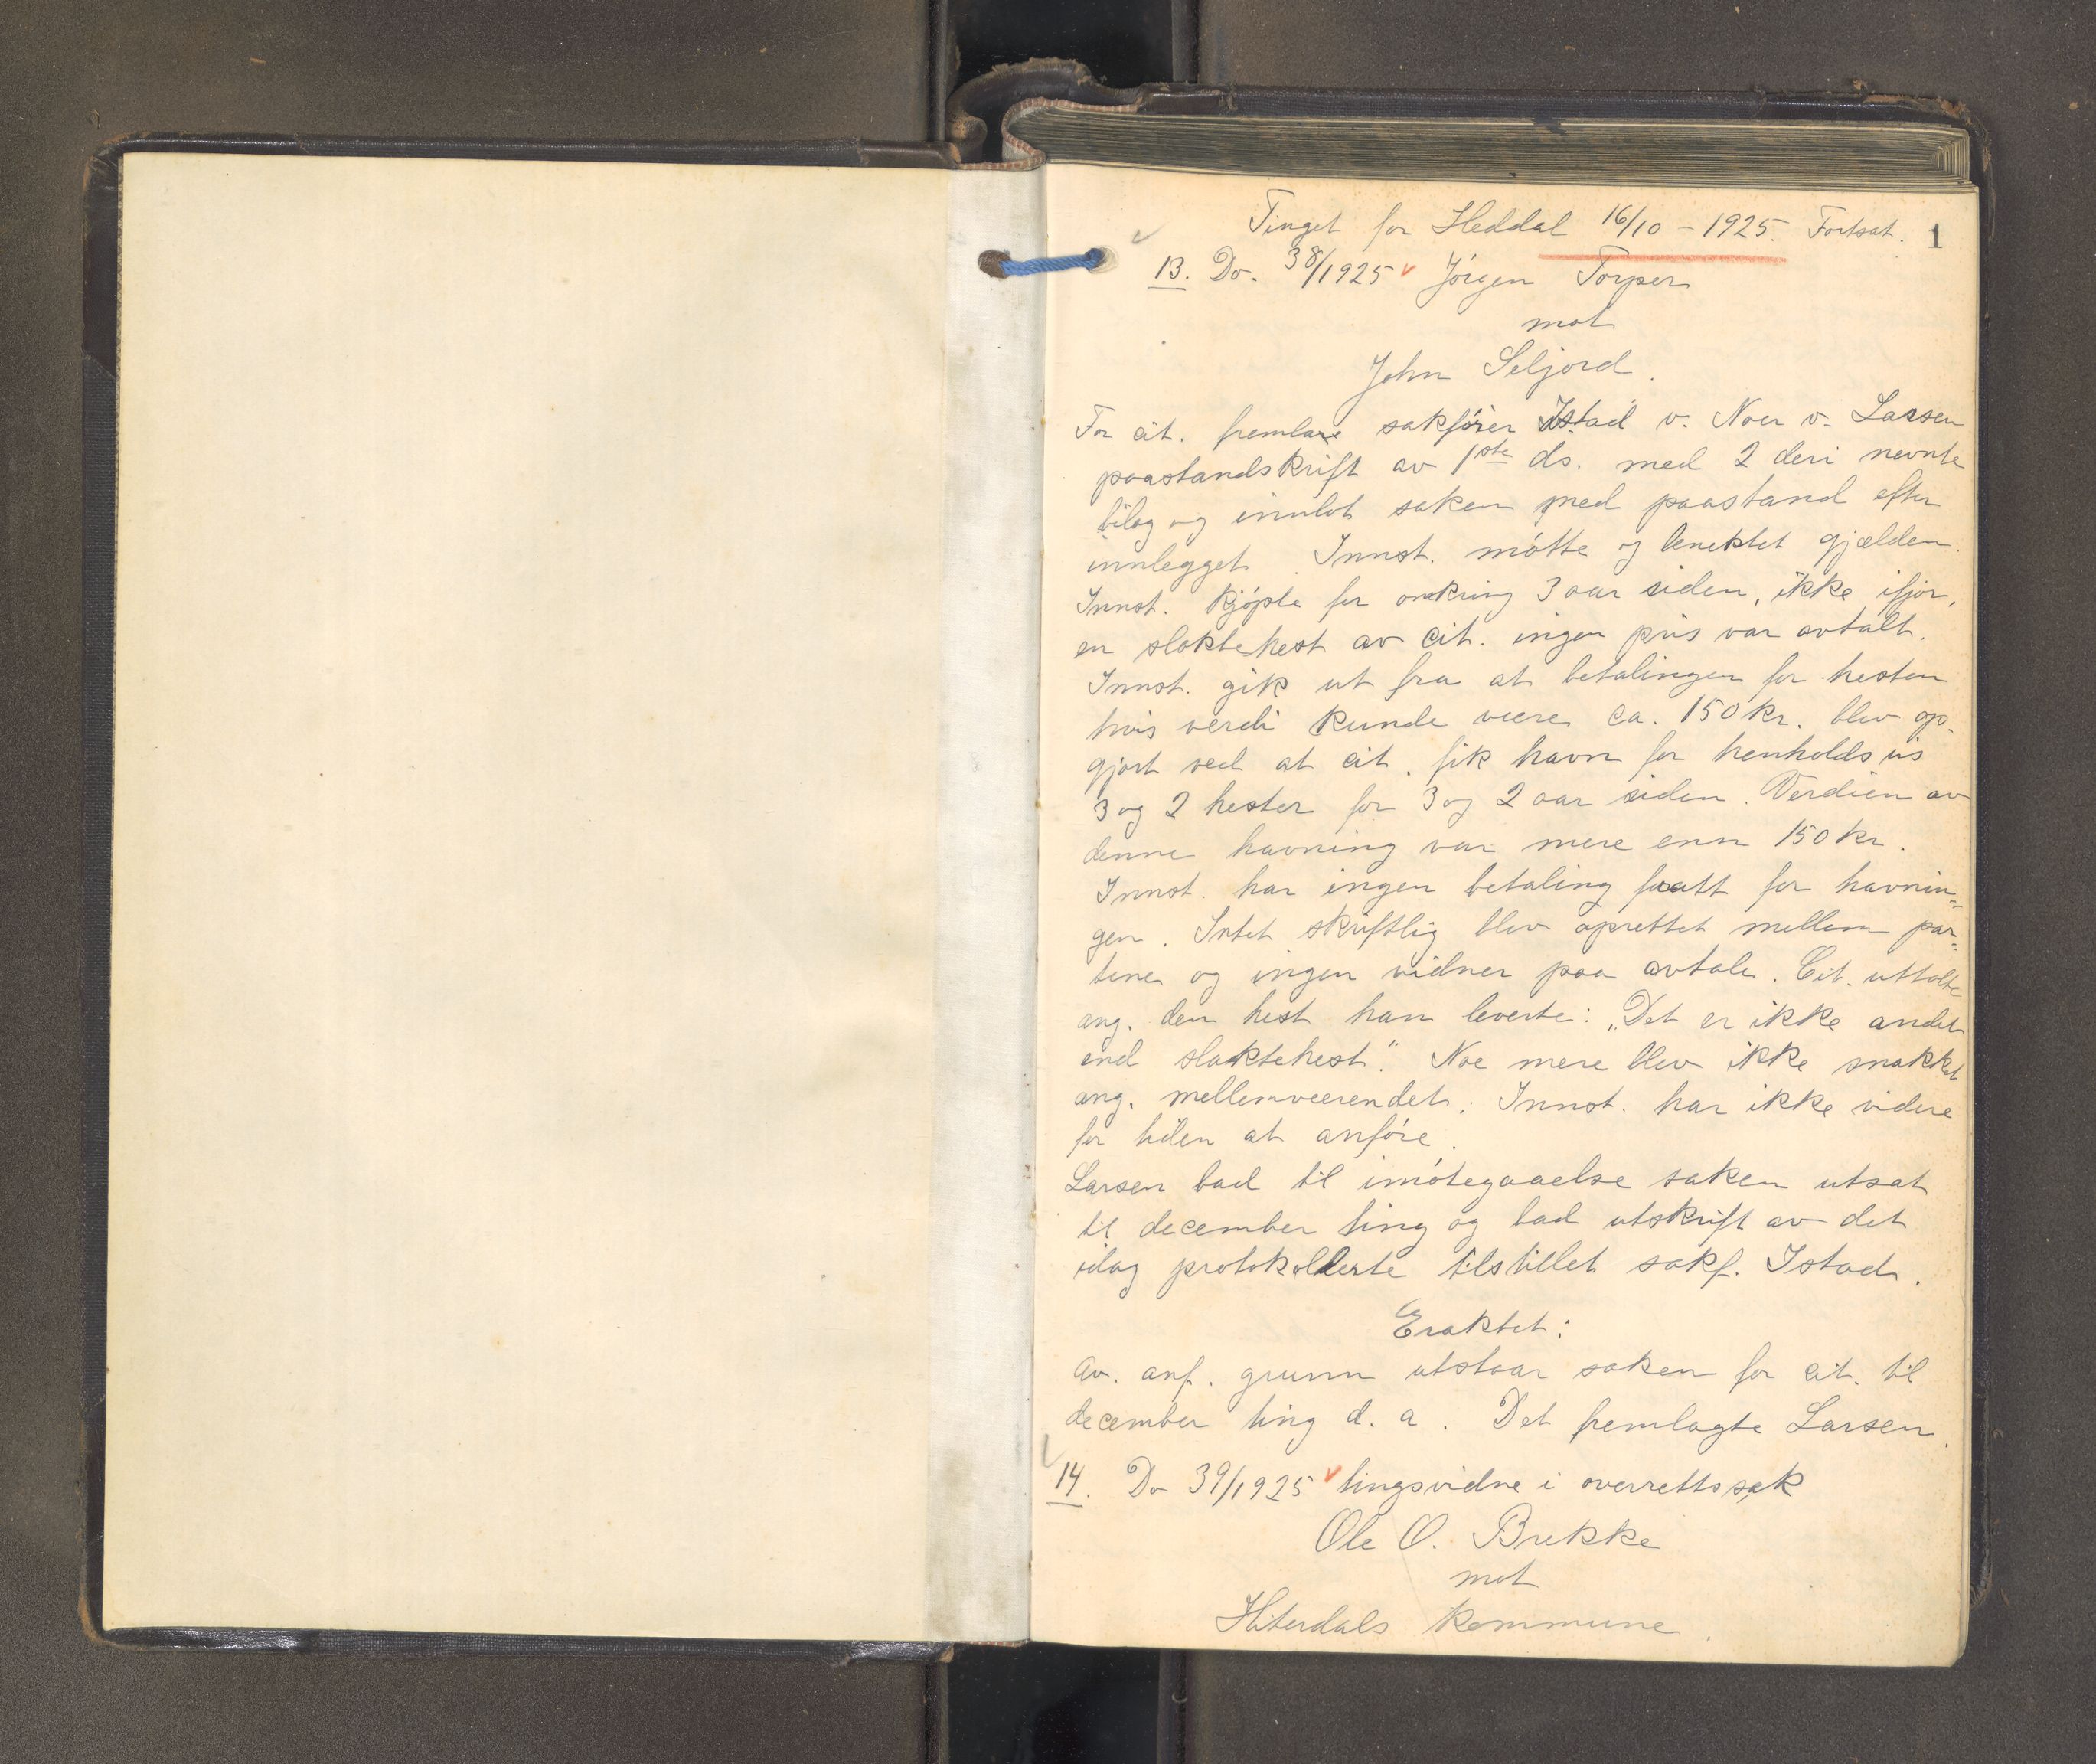 Tinget for Heddal 16/10 - 1925. Fortsat. 1
13. Do. 38/1925 v Jörgen Torper
mot
John Seljord.
For cit. fremla sakförer Istad v. Noer v. Larsen
paastandskrift av 1ste ds. med 2 deri nevnte
bilag og innlot saken med paastand efter
innlegget. Innst. mötte og benektet gjælden.
Innst. kjöpte for omkring 3 aar siden, ikke ifjor,
en slaktehest av cit. ingen pris var avtalt.
Innst. gik ut fra at betalingen for hesten
hvis verdi kunde være ca. 150 kr. blev op-
gjort ved at cit. fik havn for henholdsvis
3 og 2 hester for 3 og 2 aar siden. Verdien av
denne havning var mere enn 150 kr.
Innst. har ingen betaling faatt for havnin-
gen. Intet skriftlig blev oprettet mellem par-
tene og ingen vidner paa avtale. Cit. uttalte
ang. den hest han leverte: „Det er ikke andet
end slaktehest". Noe mere blev ikke snakket
ang. mellemværendet. Innst. har ikke videre
for tiden at anföre.
Larsen bad til imötegaaelse saken utsat
til december ting og bad utskrift av det
idag protokollerte tilstillet sakf. Istad.
Eraktet:
Av. anf. grunn utstaar saken for cit. til
december ting d. a. Det fremlagte Larsen.
14. Do 39/1925 v tingsvidne i overrettssak
Ole O. Brekke
mot
Hiterdals kommune.